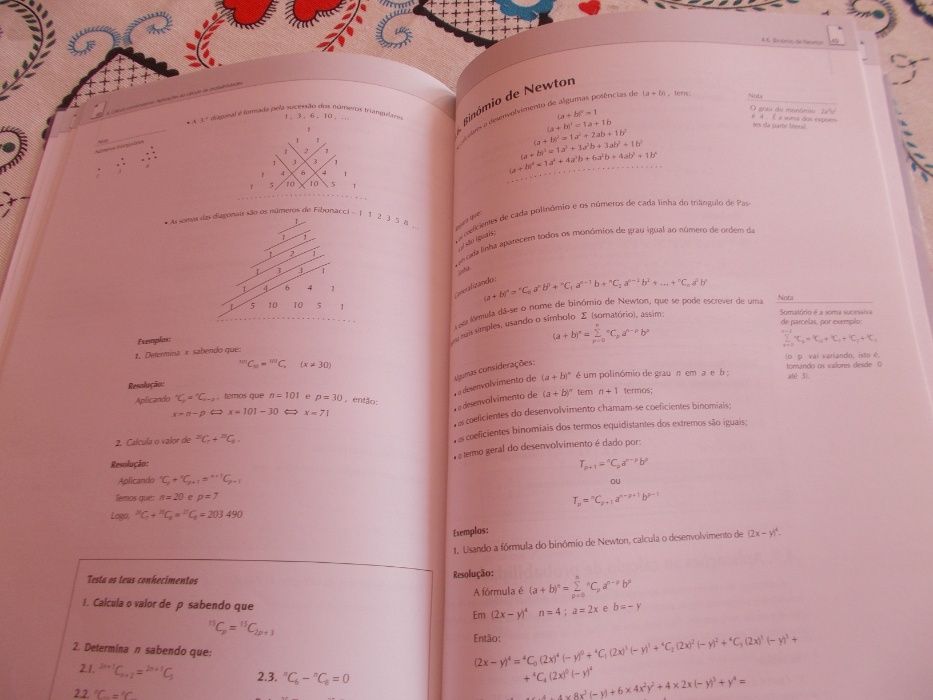 4. Cálculo combinatório. Aplicações ao cálculo de probabilidades
Nota
Números triangulares
• A 3.ª diagonal é formada pela sucessão dos números triangulares
1, 3, 6, 10, ...
1
1 1
1 2 1
1 3 3 1
1 4 6 4 1
1 5 10 10 5 1
• As somas das diagonais são os números de Fibonacci – 1 1 2 3 5 8 ...
1
1 1
1 2 1
1 3 3 1
1 4 6 4 1
1 5 10 10 5 1
Exemplos:
1. Determina x sabendo que:
¹⁰¹C₃₀ = ¹⁰¹Cₓ (x ≠ 30)
Resolução:
Aplicando ⁿCₚ = ⁿCₙ₋ₚ, temos que n = 101 e p = 30, então:
x = n – p ⇔ x = 101 – 30 ⇔ x = 71
2. Calcula o valor de ²⁰C₇ + ²⁰C₈.
Resolução:
Aplicando ⁿCₚ + ⁿCₚ₊₁ = ⁿ⁺¹Cₚ₊₁
Temos que: n = 20 e p = 7
Logo, ²⁰C₇ + ²⁰C₈ = ²¹C₈ = 203 490
Testa os teus conhecimentos
1. Calcula o valor de p sabendo que
¹⁵Cₚ = ¹⁵C₂ₚ₊₃
2. Determina n sabendo que:
2.1.
2.3. ⁿC₆ – ⁿC₈ = 0
2.2.
4.6. Binómio de Newton
Binómio de Newton
o desenvolvimento de algumas potências de (a + b), tens:
(a + b)⁰ = 1
(a + b)¹ = 1a + 1b
(a + b)² = 1a² + 2ab + 1b²
(a + b)³ = 1a³ + 3a²b + 3ab² + 1b³
(a + b)⁴ = 1a⁴ + 4a³b + 6a²b² + 4ab³ + 1b⁴
Nota
O grau do monómio
é 4. É a soma dos expoen-
tes da parte literal.
que:
• os coeficientes de cada polinómio e os números de cada linha do triângulo de Pas-
cal são iguais;
• em cada linha aparecem todos os monómios de grau igual ao número de ordem da
linha.
Generalizando:
(a + b)ⁿ = ⁿC₀ aⁿ b⁰ + ⁿC₁ aⁿ⁻¹ b + ⁿC₂ aⁿ⁻² b² + ... + ⁿCₙ a⁰ bⁿ
fórmula dá-se o nome de binómio de Newton, que se pode escrever de uma
mais simples, usando o símbolo Σ (somatório), assim:
(a + b)ⁿ = Σ ⁿCₚ aⁿ⁻ᵖ bᵖ
Nota
Somatório é a soma sucessiva
de parcelas, por exemplo:
(o p vai variando, isto é,
tomando os valores desde 0
até 3).
Algumas considerações:
• o desenvolvimento de (a + b)ⁿ é um polinómio de grau n em a e b;
• o desenvolvimento de (a + b)ⁿ tem n + 1 termos;
• os coeficientes do desenvolvimento chamam-se coeficientes binomiais;
• os coeficientes binomiais dos termos equidistantes dos extremos são iguais;
• o termo geral do desenvolvimento é dado por:
Tₚ₊₁ = ⁿCₚ aⁿ⁻ᵖ bᵖ
ou
Tₚ = ⁿCₚ₊₁ aⁿ⁻ᵖ⁺¹ bᵖ⁻¹
Exemplos:
1. Usando a fórmula do binómio de Newton, calcula o desenvolvimento de (2x – y)⁴.
Resolução:
A fórmula é (a + b)ⁿ = Σ ⁿCₚ aⁿ⁻ᵖ bᵖ
Em (2x – y)⁴ n = 4 ; a = 2x e b = – y
Então:
(2x – y)⁴ = ⁴C₀ (2x)⁴ (– y)⁰ + ⁴C₁ (2x)³ (– y)¹ + ⁴C₂ (2x)² (– y)² + ⁴C₃ (2x)¹ (– y)³ +
+ ⁴C₄ (2x)⁰ (– y)⁴
4 × 8x³ (– y) + 6 × 4x²y² + 4 × 2x (– y)³ + y⁴ =